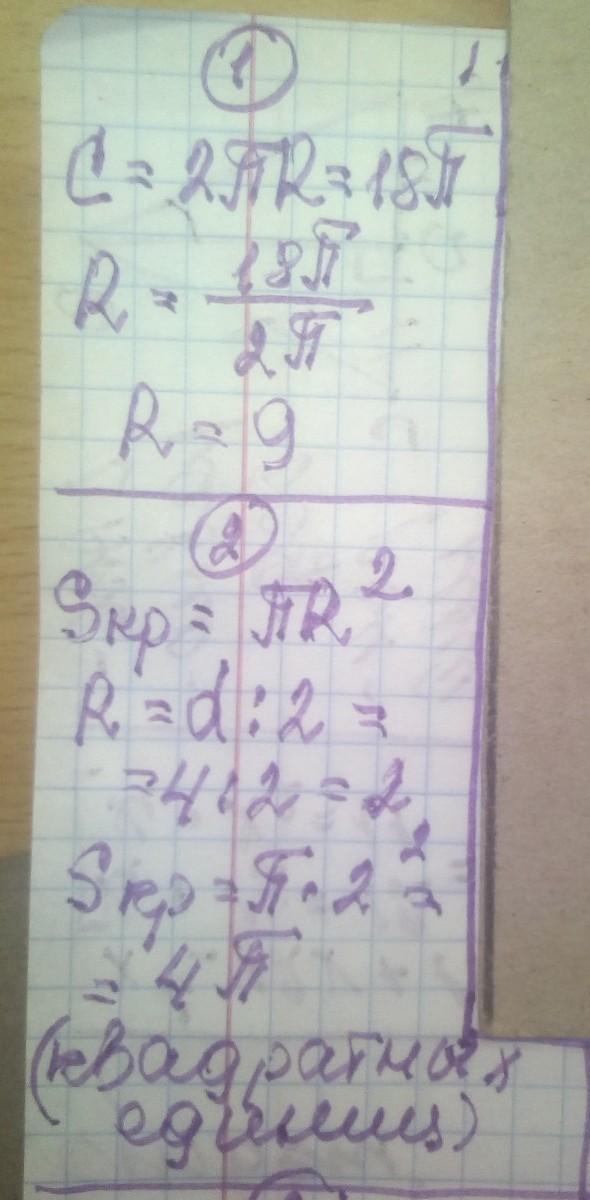 1
C = 2πR = 18π
R = 18π / 2π
R = 9
2
Sкр = πR²
R = d : 2 =
= 4 : 2 = 2
Sкр = π · 2² =
= 4π
(квадратных
единиц)